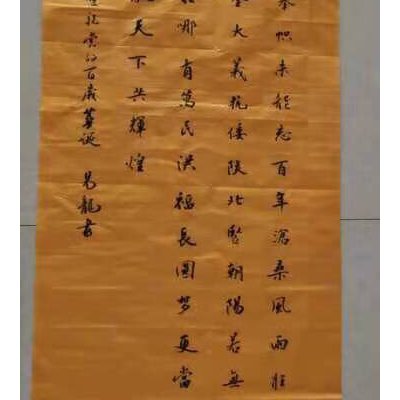 帜未能忘百年滄桑風雨壯
大義抗倭陝北朝陽若無
哪有萬民洪福長圓夢更當
天下共輝煌
黨的百歲華誕 易龍書